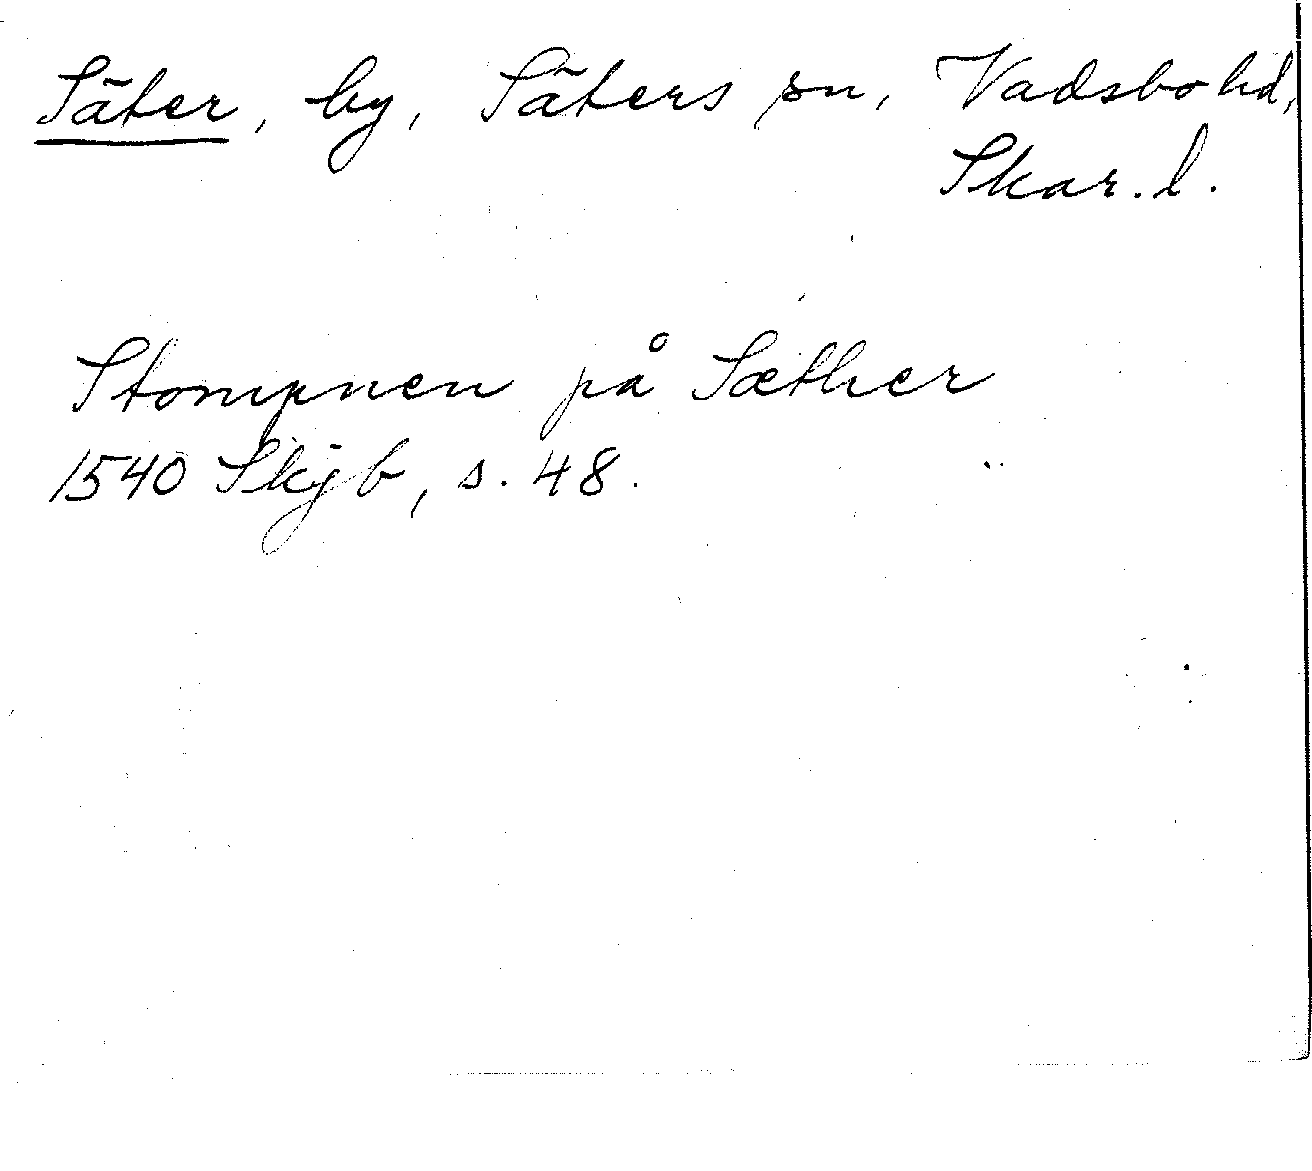 Säter, by, Säters sn, Vadsbo hd,
Skar. l.
Stompnen på Sæther
1540 Skjb, s. 48.